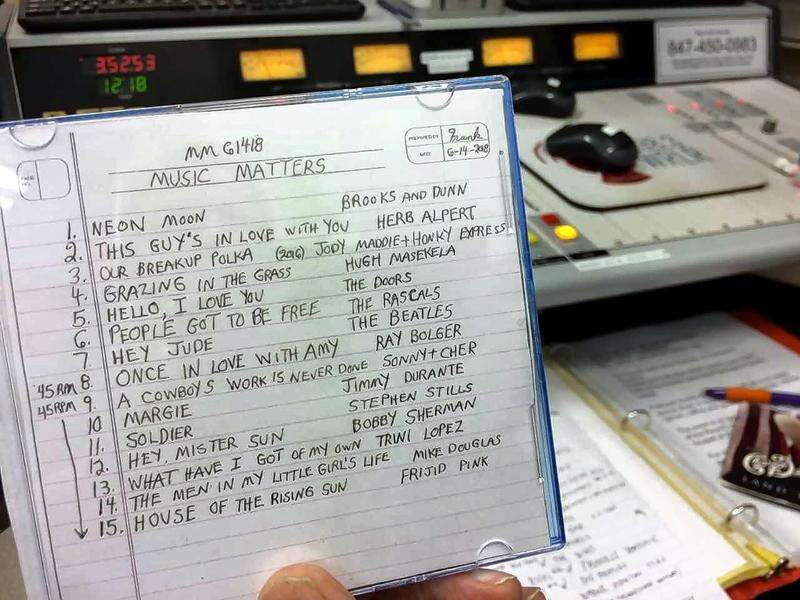 3:52:53
12 18
847-450-0983
MM 61418
PREPARED BY Frank
DATE 6-14-2018
MUSIC MATTERS
1. NEON MOON BROOKS AND DUNN
2. THIS GUY'S IN LOVE WITH YOU HERB ALPERT
3. OUR BREAKUP POLKA (2016) JODY MADDIE+HONKY EXPRESS
4. GRAZING IN THE GRASS HUGH MASEKELA
5. HELLO, I LOVE YOU THE DOORS
6. PEOPLE GOT TO BE FREE THE RASCALS
7 HEY JUDE THE BEATLES
45 RPM 8. ONCE IN LOVE WITH AMY RAY BOLGER
45RPM 9. A COWBOYS WORK IS NEVER DONE SONNY+CHER
10 MARGIE JIMMY DURANTE
11. SOLDIER STEPHEN STILLS
12. HEY, MISTER SUN BOBBY SHERMAN
13. WHAT HAVE I GOT OF MY OWN TRINI LOPEZ
14. THE MEN IN MY LITTLE GIRL'S LIFE MIKE DOUGLAS
15. HOUSE OF THE RISING SUN FRIJID PINK